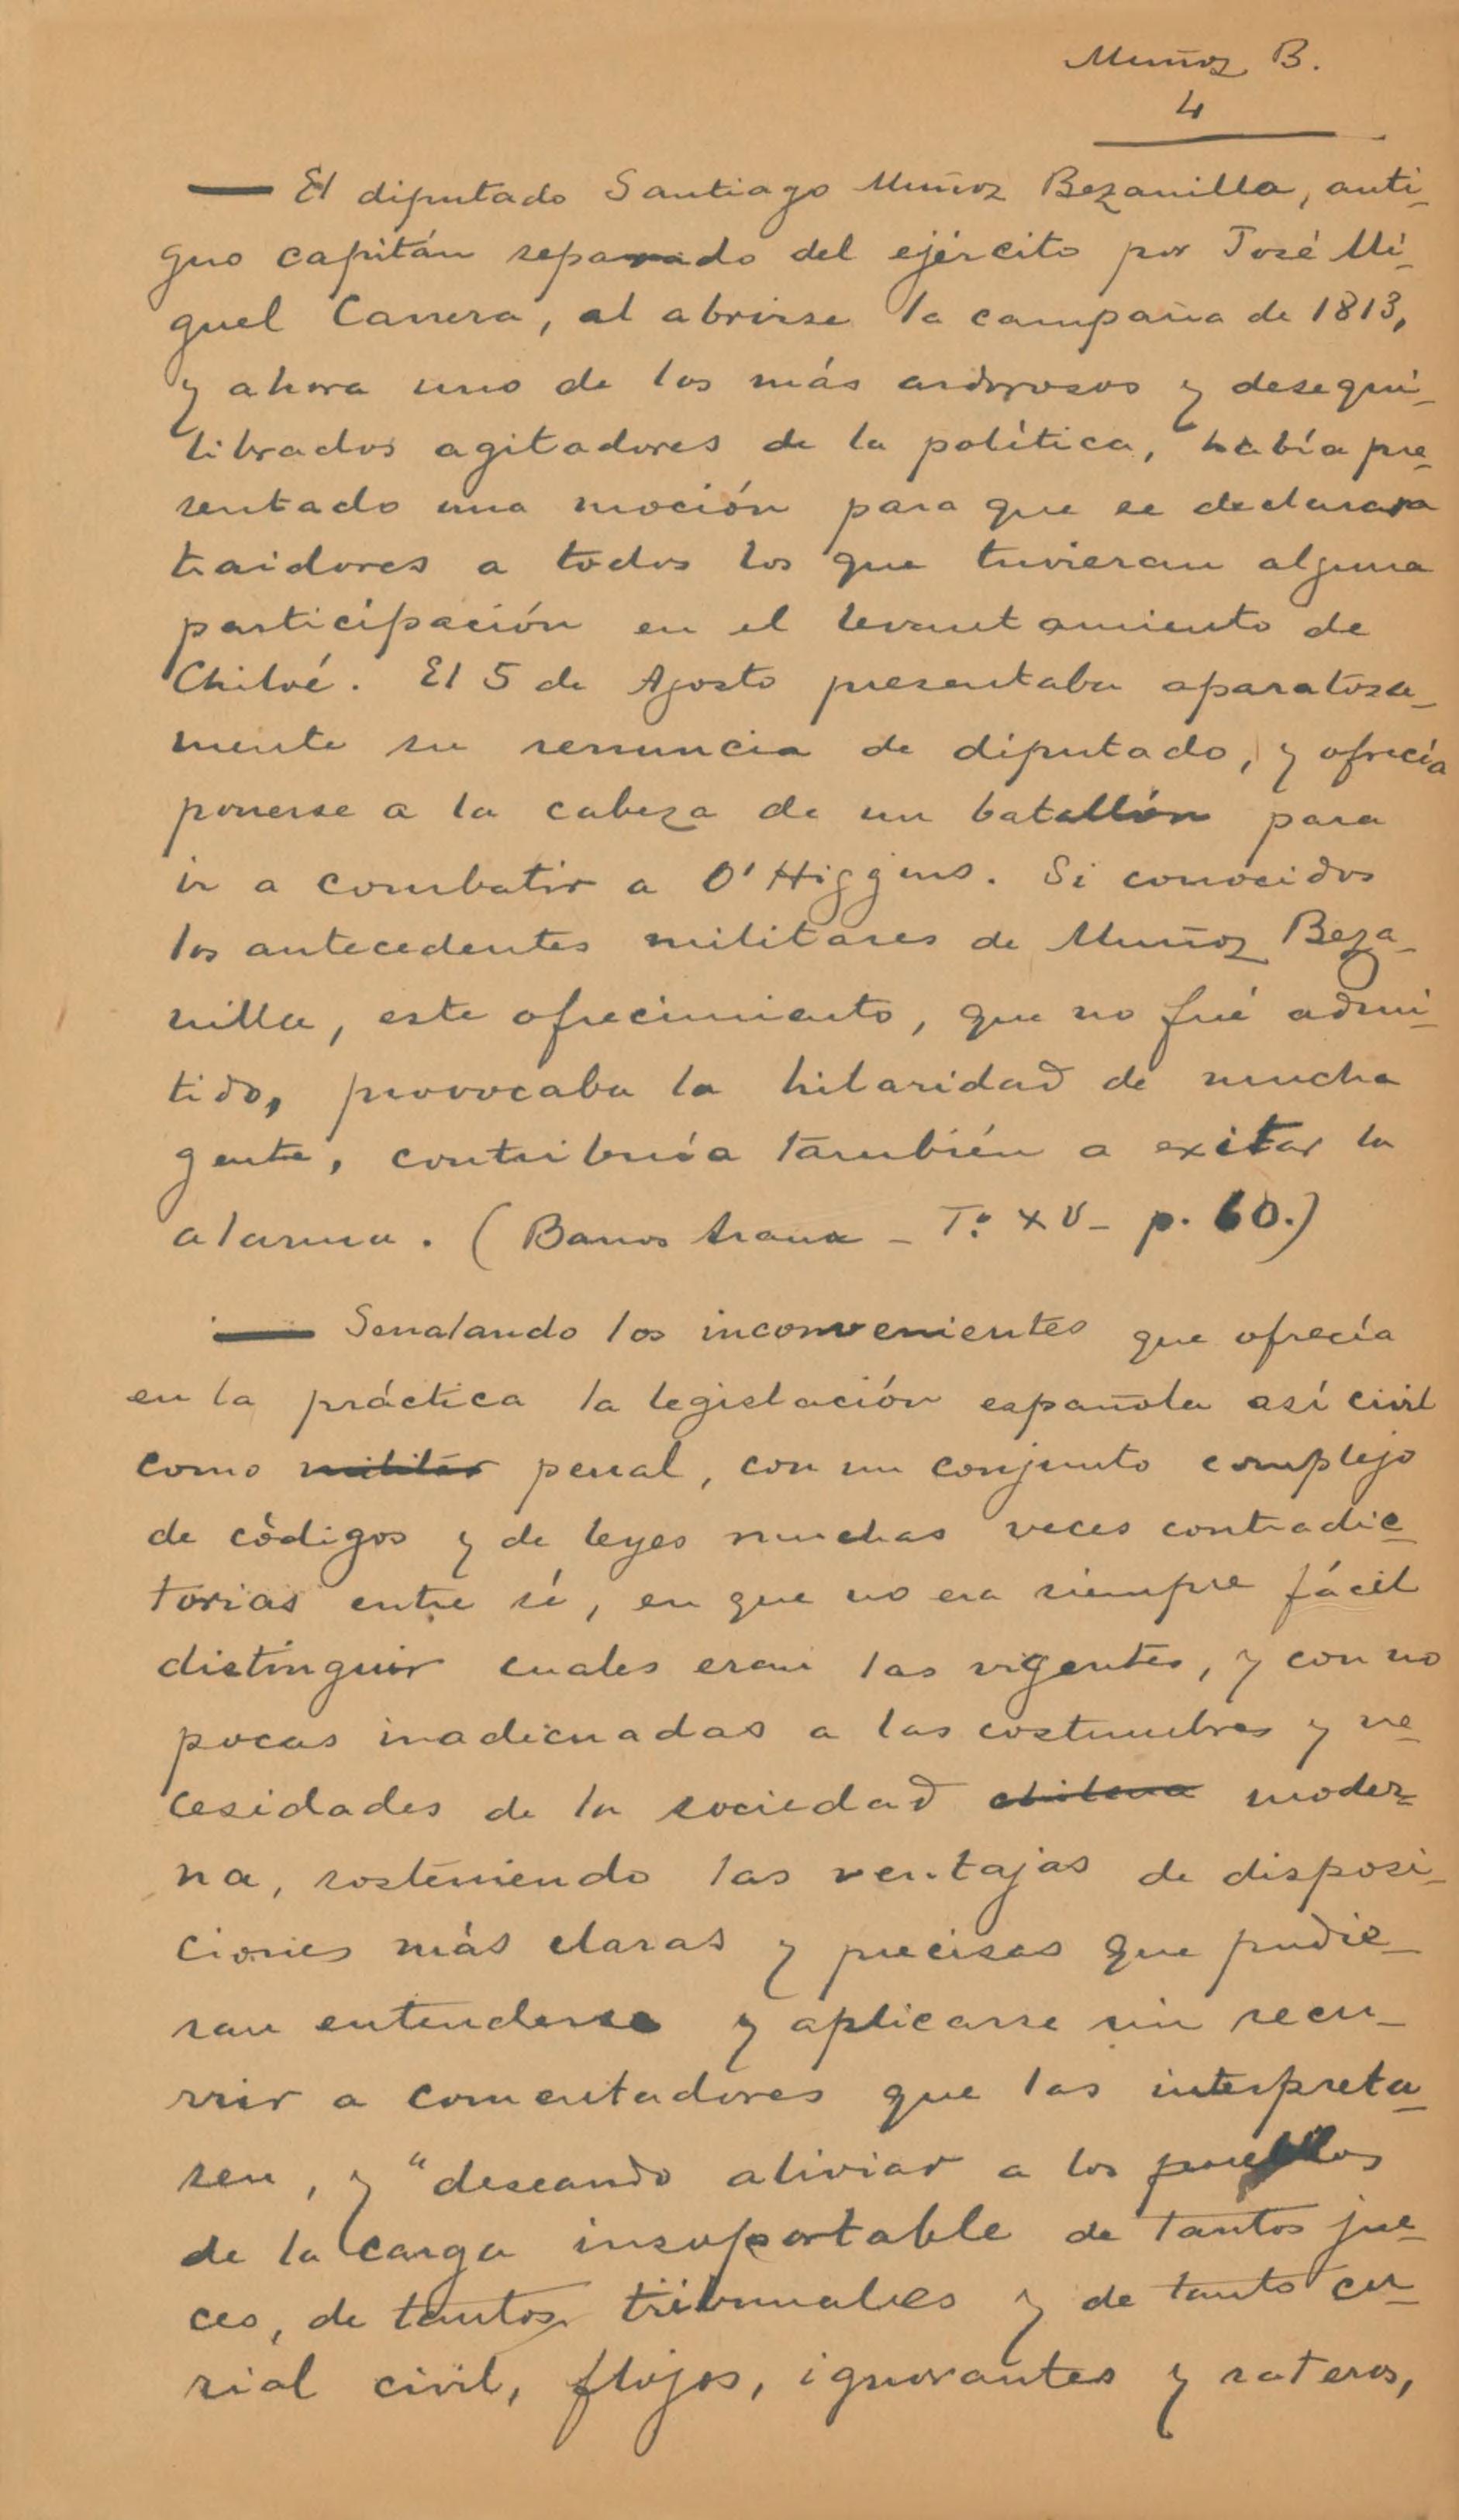 Muñoz B.
4
— El diputado Santiago Muñoz Bezanilla, anti-
guo capitán separado del ejército por José Mi-
guel Carrera, al abrirse la campaña de 1813,
y ahora uno de los más ardorosos y desequi-
librados agitadores de la política, había pre-
sentado una moción para que se declarara
traidores a todos los que tuvieran alguna
participación en el levantamiento de
Chiloé. El 5 de Agosto presentaba aparatosa-
mente su renuncia de diputado, y ofrecía
ponerse a la cabeza de un batallón para
ir a combatir a O'Higgins. Si conocidos
los antecedentes militares de Muñoz Beza-
nilla, este ofrecimiento, que no fué admi-
tido, provocaba la hilaridad de mucha
gente, contribuía también a exitar la
alarma. (Barros Arana - T.º XV - p. 60.)
— Senalando los inconvenientes que ofrecía
en la práctica la legislación española así civil
como militar penal, con un conjunto complejo
de códigos y de leyes muchas veces contradic-
torias entre sí, en que no era siempre fácil
distinguir cuales eran las vigentes, y con no
pocas inadecuadas a las costumbres y ne-
cesidades de la sociedad chilena moder-
na, sosteniendo las ventajas de disposi-
ciones más claras y precisas que pudie-
ran entenderse y aplicarse sin recu-
rrir a comentadores que las interpreta-
sen, y "deseando aliviar a los pueblos
de la carga insoportable de tantos jue-
ces, de tantos tribunales y de tanto cu-
rial civil, flojos, ignorantes y rateros,